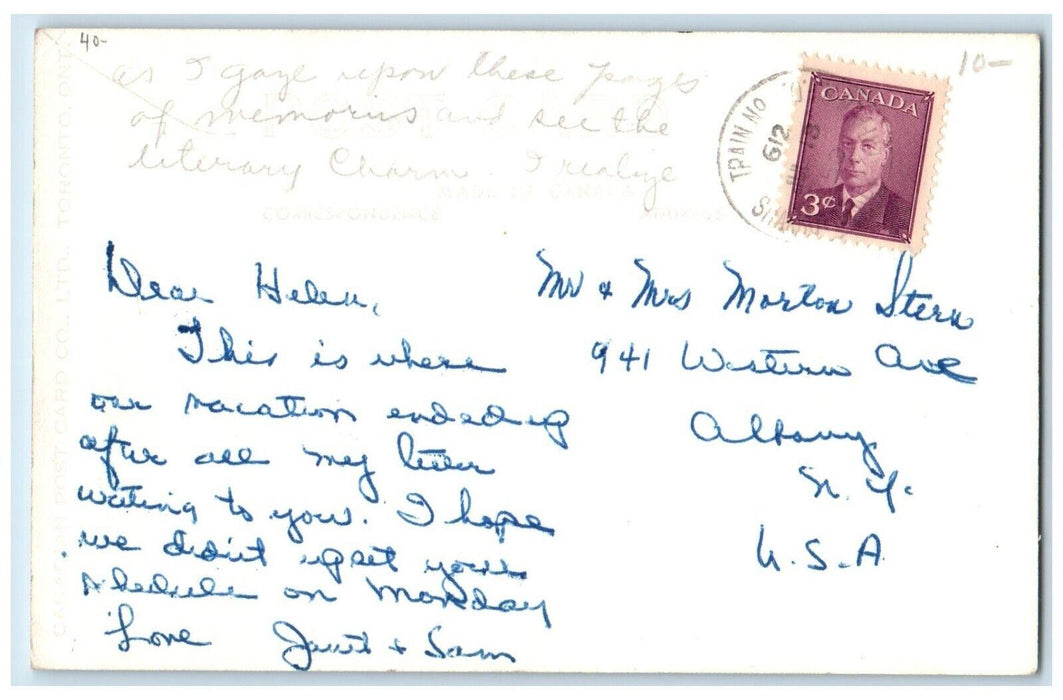 40-
10-
as I gaze upon these pages
of memories and see the
literary Charm. I realize
CANADA
3¢
TRAIN No
612
MADE IN CANADA
CORRESPONDENCE
ADDRESS
CANADIAN POST CARD CO., LTD., TORONTO, ONT.
Dear Helen,
This is where
our vacation ended up
after all my letter
writing to you. I hope
we didn't upset your
schedule on Monday
Love Janet + Sam
Mr + Mrs Morton Stern
941 Western Ave
Albany
N.Y.
U.S.A